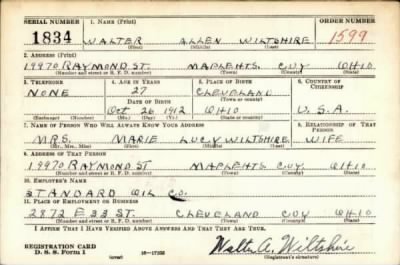 SERIAL NUMBER 1. NAME (Print) ORDER NUMBER
1834 WALTER ALLEN WILTSHIRE 1599
(First) (Middle) (Last)
2. ADDRESS (Print)
19970 RAYMOND ST. MAPLE HTS. CUY OHIO
(Number and street or R. F. D. number) (Town) (County) (State)
3. TELEPHONE 4. AGE IN YEARS 5. PLACE OF BIRTH 6. COUNTRY OF CITIZENSHIP
NONE 27 CLEVELAND
DATE OF BIRTH (Town or county)
Oct 26 1912 OHIO U.S.A.
(Exchange) (Number) (Mo.) (Day) (Yr.) (State or country)
7. NAME OF PERSON WHO WILL ALWAYS KNOW YOUR ADDRESS 8. RELATIONSHIP OF THAT PERSON
MRS. MARIE LUCY WILTSHIRE WIFE
(Mr., Mrs., Miss) (First) (Middle) (Last)
9. ADDRESS OF THAT PERSON
19970 RAYMOND ST MAPLE HTS. CUY. OHIO
(Number and street or R. F. D. number) (Town) (County) (State)
10. EMPLOYER'S NAME
STANDARD OIL CO.
11. PLACE OF EMPLOYMENT OR BUSINESS
2872 E 33 ST. CLEVELAND CUY OHIO
(Number and street or R. F. D. number) (Town) (County) (State)
I AFFIRM THAT I HAVE VERIFIED ABOVE ANSWERS AND THAT THEY ARE TRUE.
REGISTRATION CARD
D. S. S. Form 1 (over) Walter A. Wiltshire
(Registrant's signature)